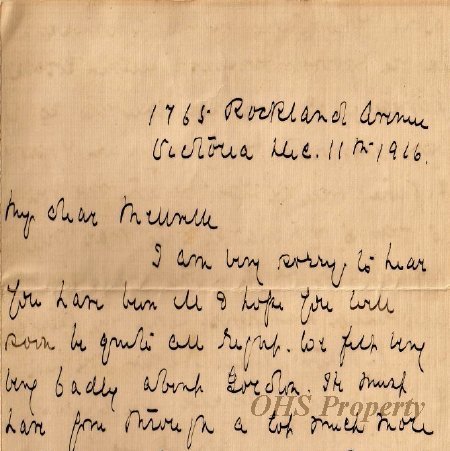 1765 Rockland Avenue
Victoria Dec. 11th 1916.
My dear Melville
I am very sorry to hear
you have been ill I hope you will
soon be quite all right. We felt very
very badly about Gordon. He must
have gone through a lot much more
OHS Property